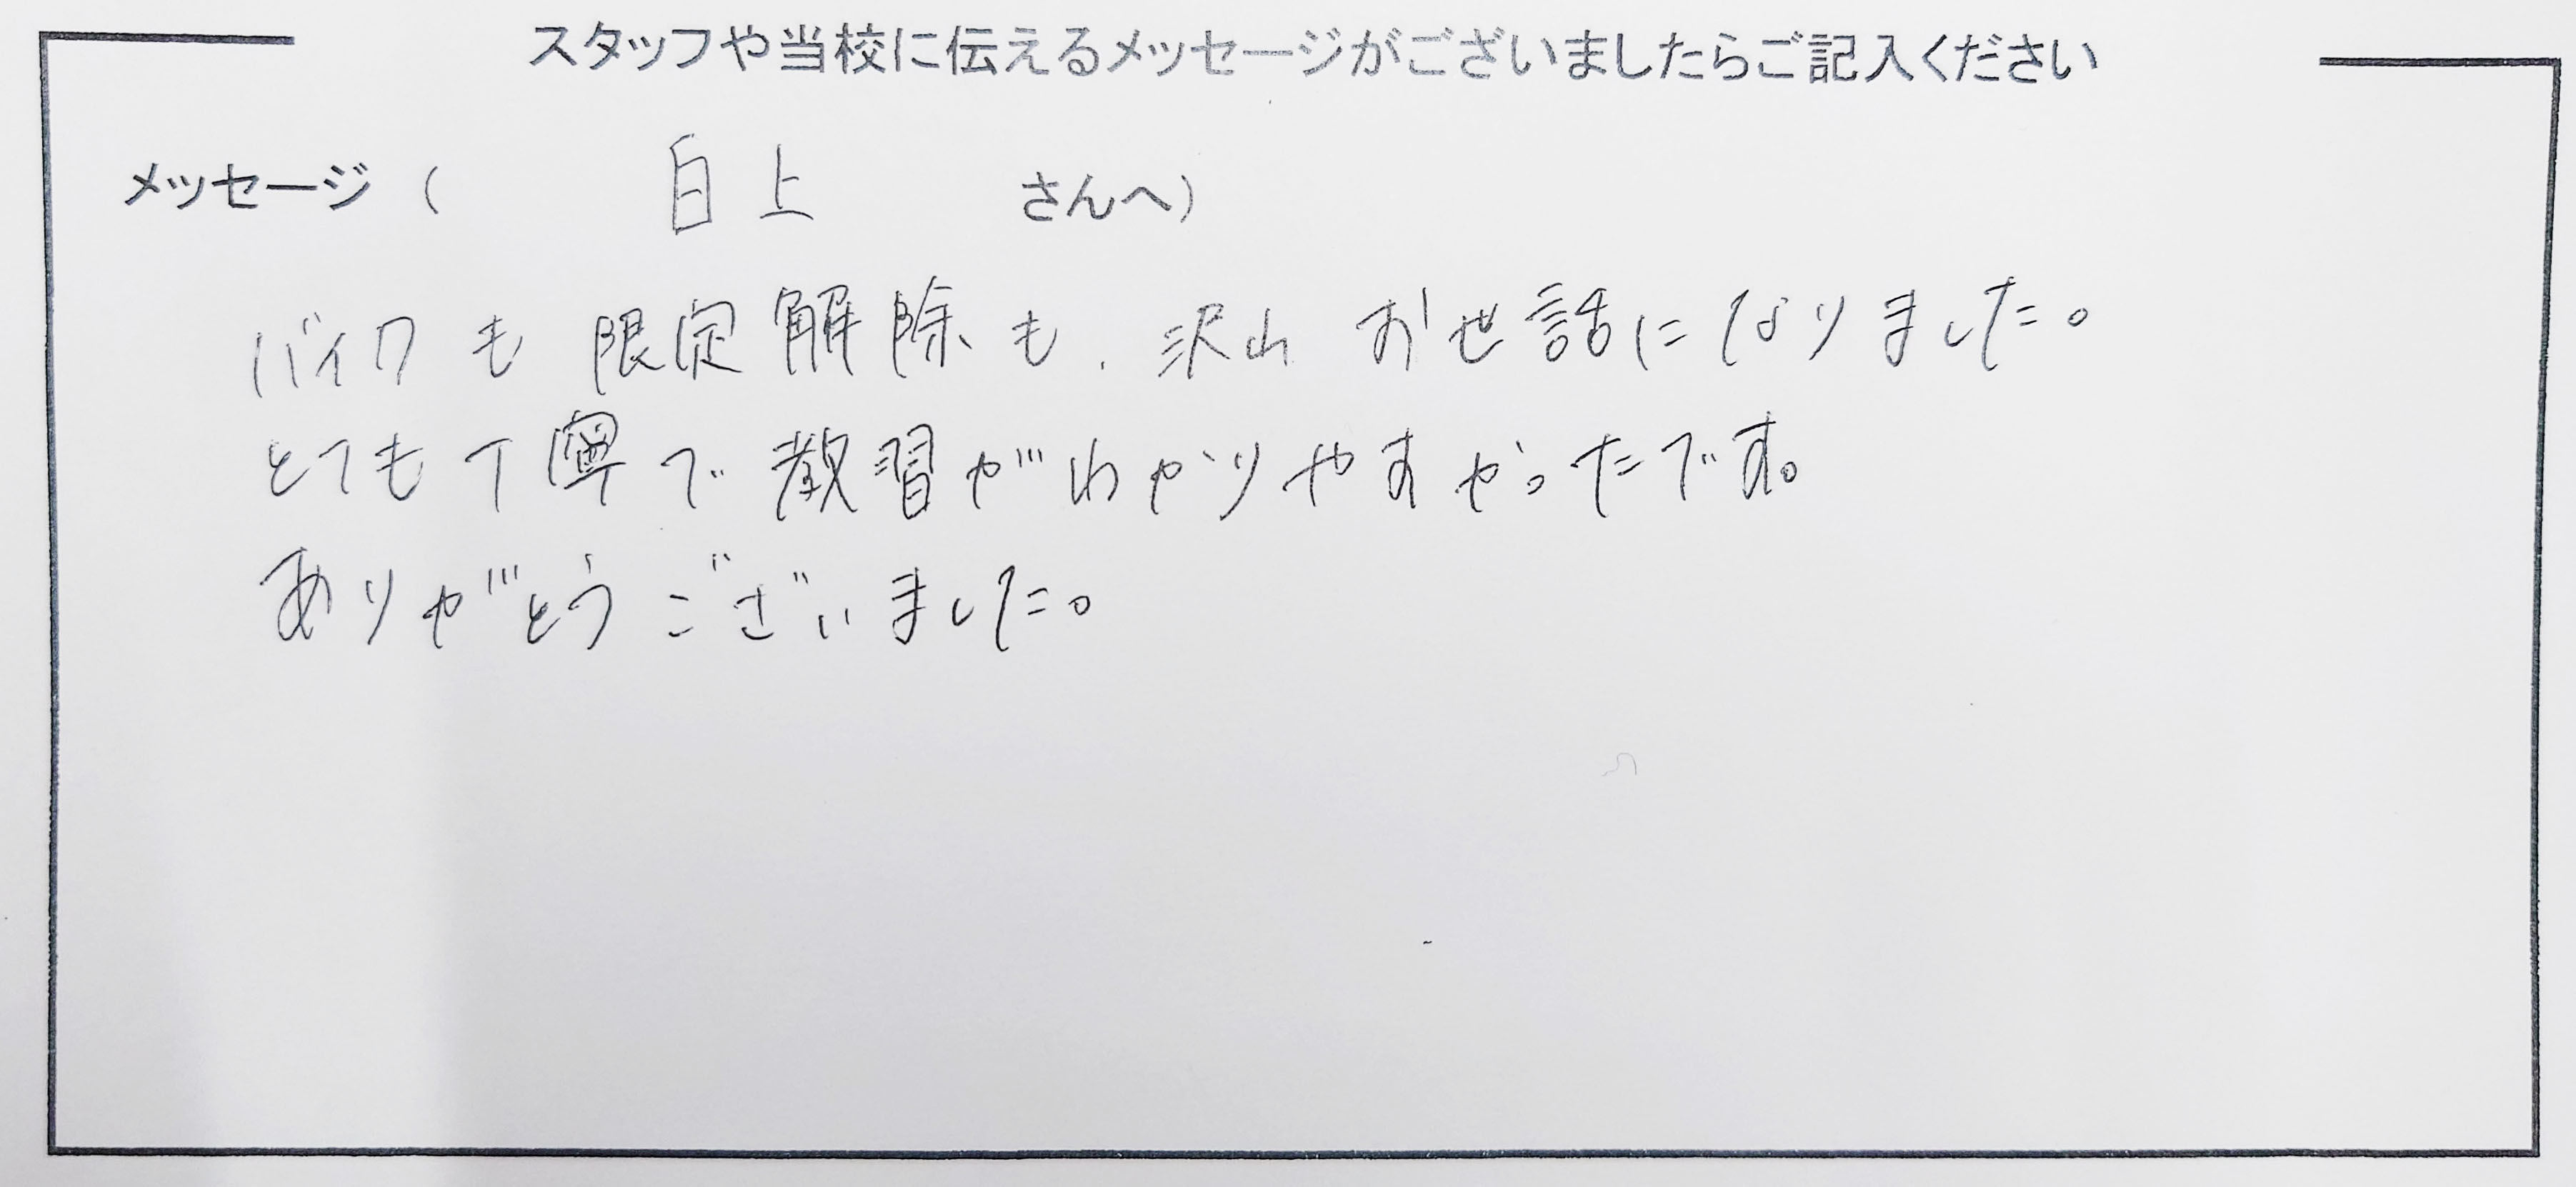 スタッフや当校に伝えるメッセージがございましたらご記入ください
メッセージ（ 白上 さんへ）
バイクも限定解除も、沢山お世話になりました。
とても丁寧で教習がわかりやすかったです。
ありがとうございました。